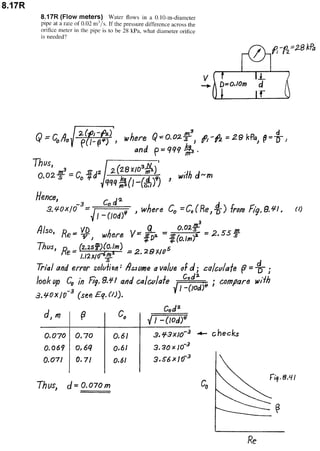 8.17R
8.17R (Flow meters) Water flows in a 0.10-m-diameter
pipe at a rate of 0.02 m³/s. If the pressure difference across the
orifice meter in the pipe is to be 28 kPa, what diameter orifice
is needed?
p₁-p₂=28 kPa
V
D=0.10m d
Q = C₀A₀ √(2(p₁-p₂)/ρ(1-β⁴)) , where Q=0.02 m³/s, p₁-p₂ = 28 kPa, β=d/D,
and ρ=999 kg/m³.
Thus,
0.02 m³/s = C₀ π/4 d² √(2(28×10³ N/m²)/999 kg/m³ (1-(d/0.1)⁴)) , with d~m
Hence,
3.40×10⁻³ = C₀d²/√(1-(10d)⁴) , where C₀ = C₀(Re, d/D) from Fig. 8.41. (1)
Also, Re = VD/ν, where V = Q/(π/4 D²) = 0.02 m³/s / (π/4 (0.1m)²) = 2.55 m/s
Thus, Re = (2.55 m/s)(0.1m) / 1.12×10⁻⁶ m²/s = 2.28×10⁵
Trial and error solution: Assume a value of d; calculate β = d/D ;
look up C₀ in Fig. 8.41 and calculate C₀d²/√(1-(10d)⁴) ; compare with
3.40×10⁻³ (see Eq.(1)).
d, m β C₀ C₀d²/√(1-(10d)⁴)
0.070 0.70 0.61 3.43×10⁻³ ← checks
0.069 0.69 0.61 3.30×10⁻³
0.071 0.71 0.61 3.56×10⁻³
Fig. 8.41
Thus, d = 0.070 m
C₀
β
Re